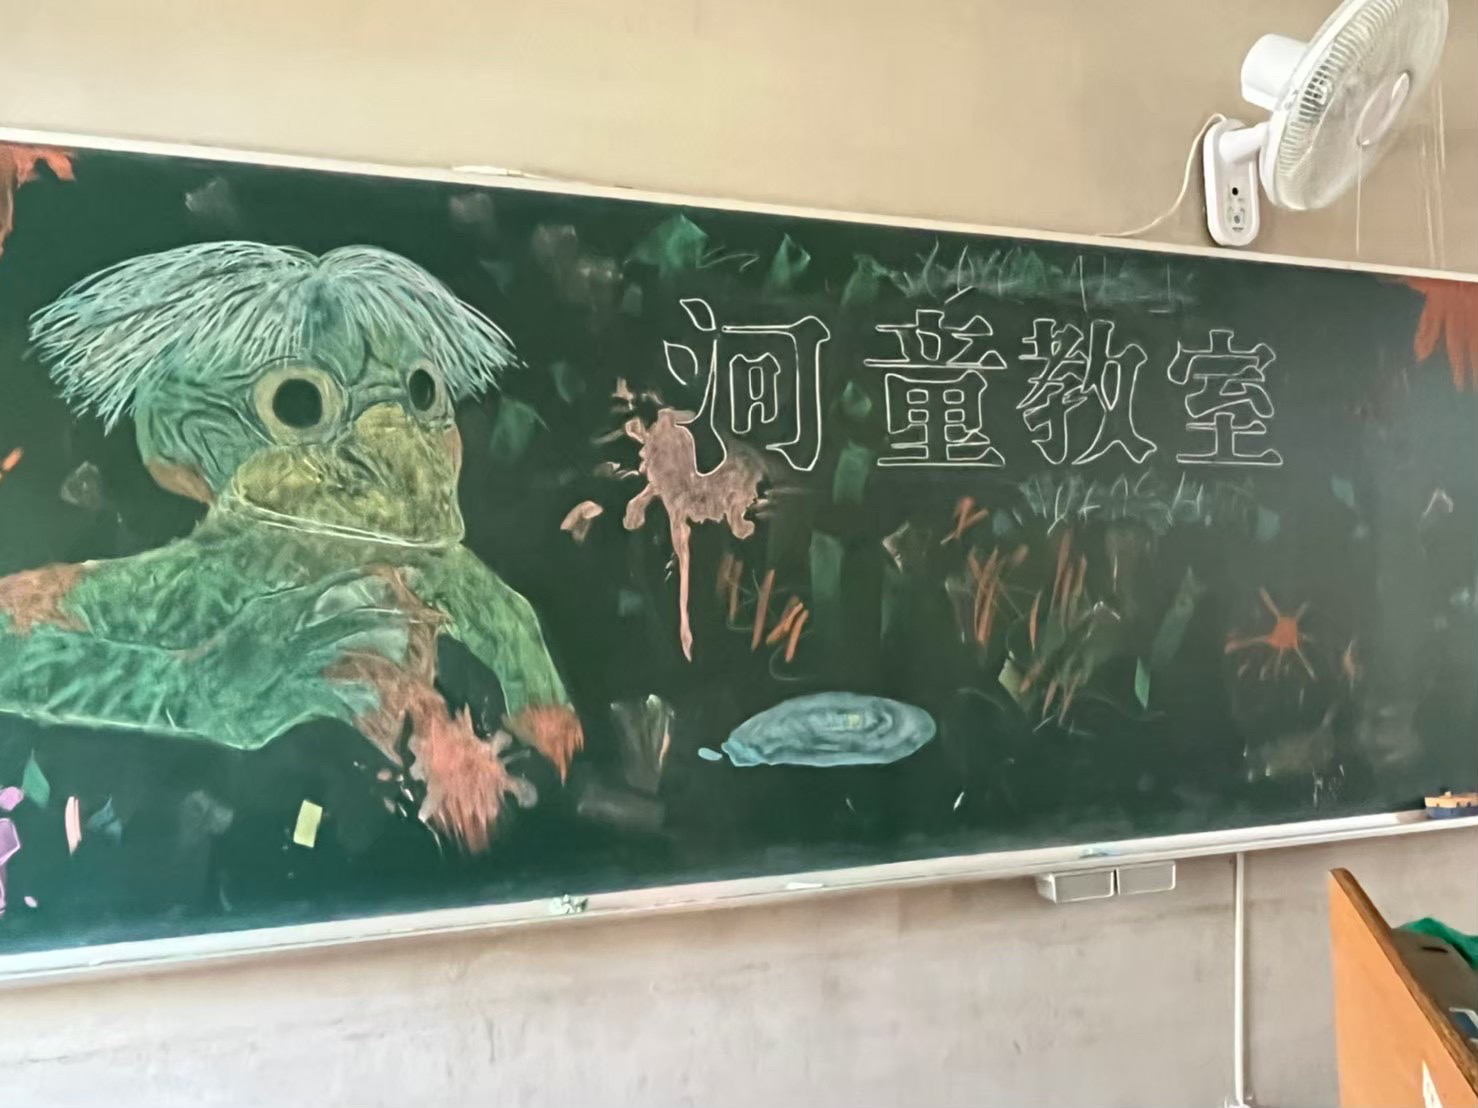 河童教室